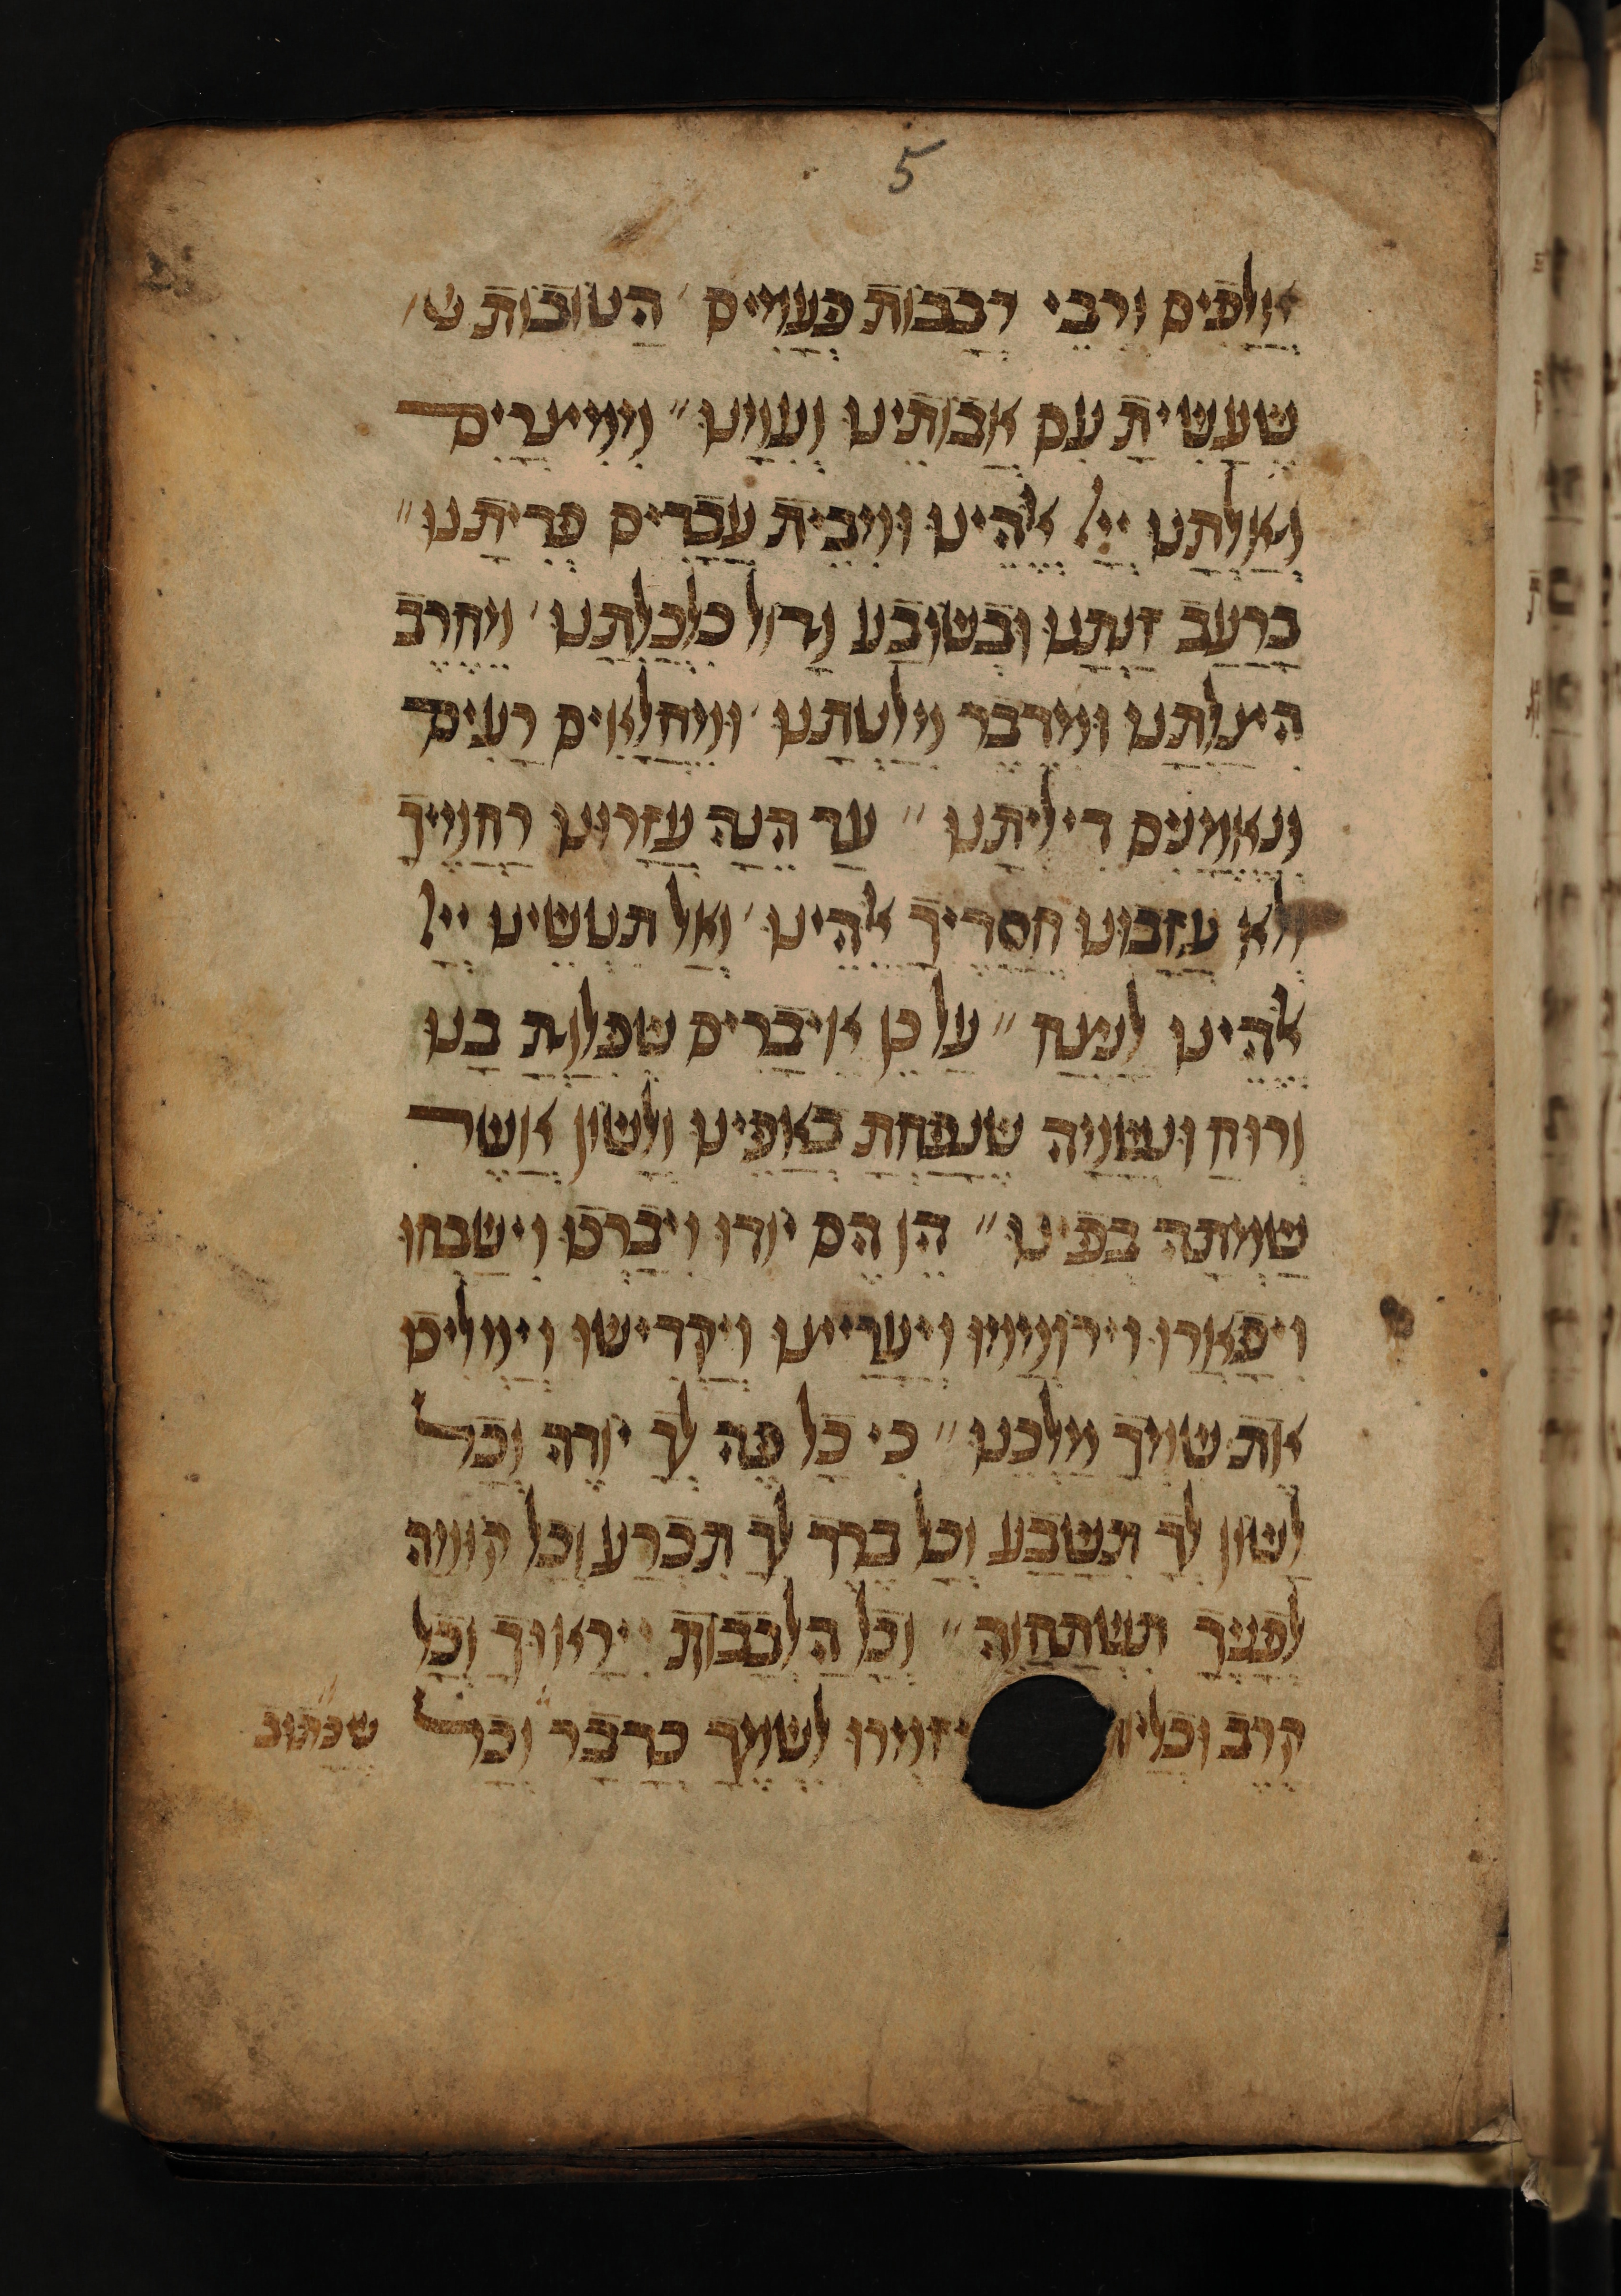 5
אֲלָפִים וְרִבֵּי רְבָבוֹת פְּעָמִים הַטּוֹבוֹת ש
שֶׁעָשִׂיתָ עִם אֲבוֹתֵינוּ וְעִמָּנוּ׃ מִמִּצְרַיִם
גְּאַלְתָּנוּ יְיָ אֱלֹהֵינוּ וּמִבֵּית עֲבָדִים פְּדִיתָנוּ׃
בְּרָעָב זַנְתָּנוּ וּבְשׂוֹבַע גָדוֹל כִּלְכַּלְתָּנוּ מֵחֶרֶב
הִצַּלְתָּנוּ וּמִדֶּבֶר מִלַּטְתָּנוּ וּמֵחֳלָאִים רָעִים
וְנֶאֱמָנִים דִּילִּיתָנוּ׃ עַד הֵנָּה עֲזָרוּנוּ רַחֲמֶיךָ
וְלֹא עֲזָבוּנוּ חֲסָדֶיךָ אֱלֹהֵינוּ וְאַל תִּטְּשֵׁינוּ יְיָ
אֱלֹהֵינוּ לָנֶצַח׃ עַל כֵּן אֵיבָרִים שֶׁפִּלַּגְתָּ בָּנוּ
וְרוּחַ וּנְשָׁמָה שֶׁנָּפַחְתָּ בְּאַפֵּינוּ וְלָשׁוֹן אֲשֶׁר
שַׂמְתָּה בְּפִינוּ׃ הֵן הֵם יוֹדוּ וִיבָרְכוּ וִישַׁבְּחוּ
וִיפָאֲרוּ וִירוֹמְמוּ וְיַעֲרִיצוּ וְיַקְדִּישׁוּ וְיַמְלִיכוּ
אֶת שִׁמְךָ מַלְכֵּנוּ׃ כִּי כָל פֶּה לְךָ יוֹדֶה וְכָל
לָשׁוֹן לְךָ תִשָּׁבַע וְכָל בֶּרֶךְ לְךָ תִכְרַע וְכָל קוֹמָה
לְפָנֶיךָ תִשְׁתַּחֲוֶה׃ וְכָל הַלְּבָבוֹת יִירָאוּךָ וְכָל
קֶרֶב וּכְלָיוֹ יְזַמְּרוּ לִשְׁמֶךָ כַּדָּבָר וְכָל
שֶׁכָּתוּב